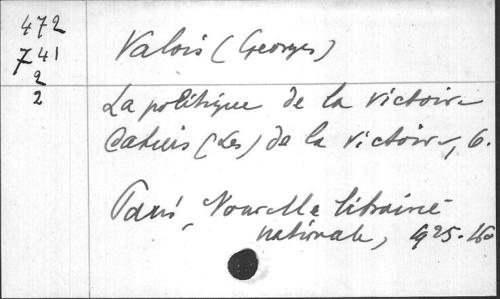 472
741
2
2
Valois (Georges)
La politique de la victoire
Cahiers (Les) de la victoire, 6.
Paris, Nouvelle librairie
nationale, 1925. 16º